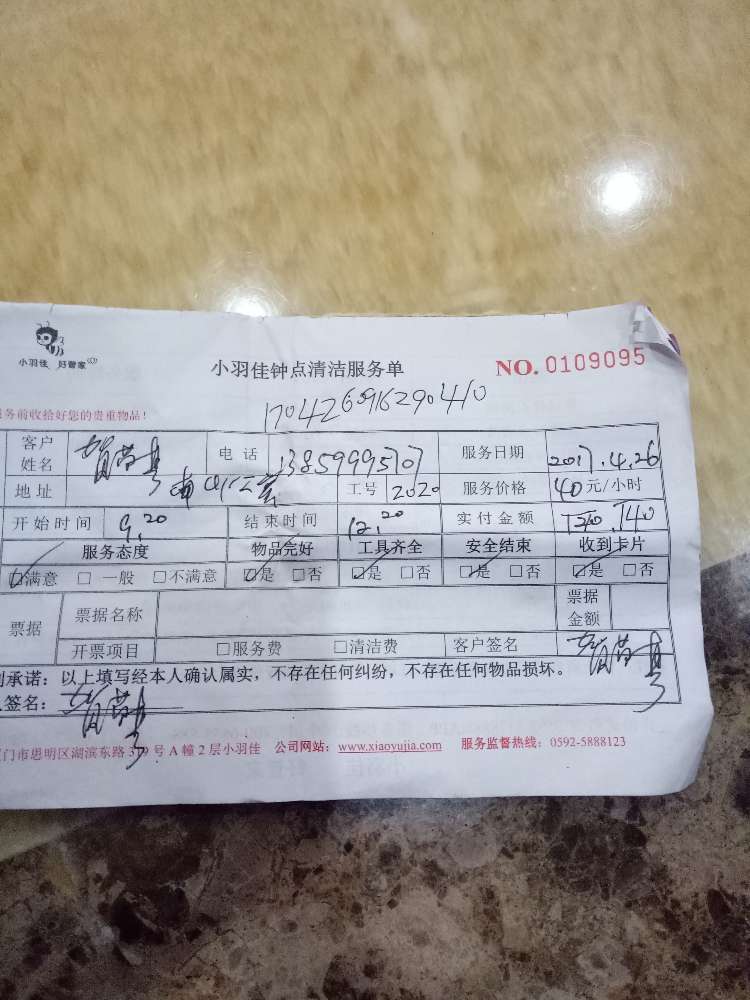 小羽佳 好管家
小羽佳钟点清洁服务单
NO. 0109095
务前收拾好您的贵重物品!
1704260916290410
客户姓名 电话 13859995707 服务日期 2017.4.26
地址 工号 2020 服务价格 40元/小时
开始时间 9.20 结束时间 12.20 实付金额 140
服务态度 物品完好 工具齐全 安全结束 收到卡片
☑满意 □一般 □不满意 ☑是 □否 ☑是 □否 ☑是 □否 ☑是 □否
票据 票据名称 票据金额
开票项目 □服务费 □清洁费 客户签名
承诺：以上填写经本人确认属实，不存在任何纠纷，不存在任何物品损坏。
签名：
门市思明区湖滨东路319号A幢2层小羽佳 公司网站：www.xiaoyujia.com 服务监督热线：0592-5888123